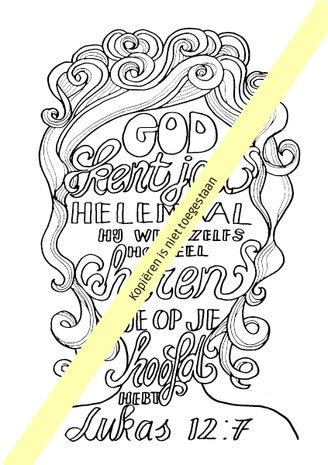 GOD
kent jou
HELEMAAL
HIJ WEET ZELFS
HOEVEEL
haren
JE OP JE
hoofd
HEBT
Lukas 12:7
Kopiëren is niet toegestaan